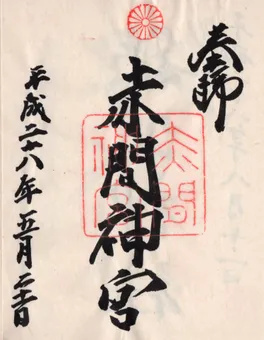 奉拝
赤間神宮
平成二十八年五月二十二日